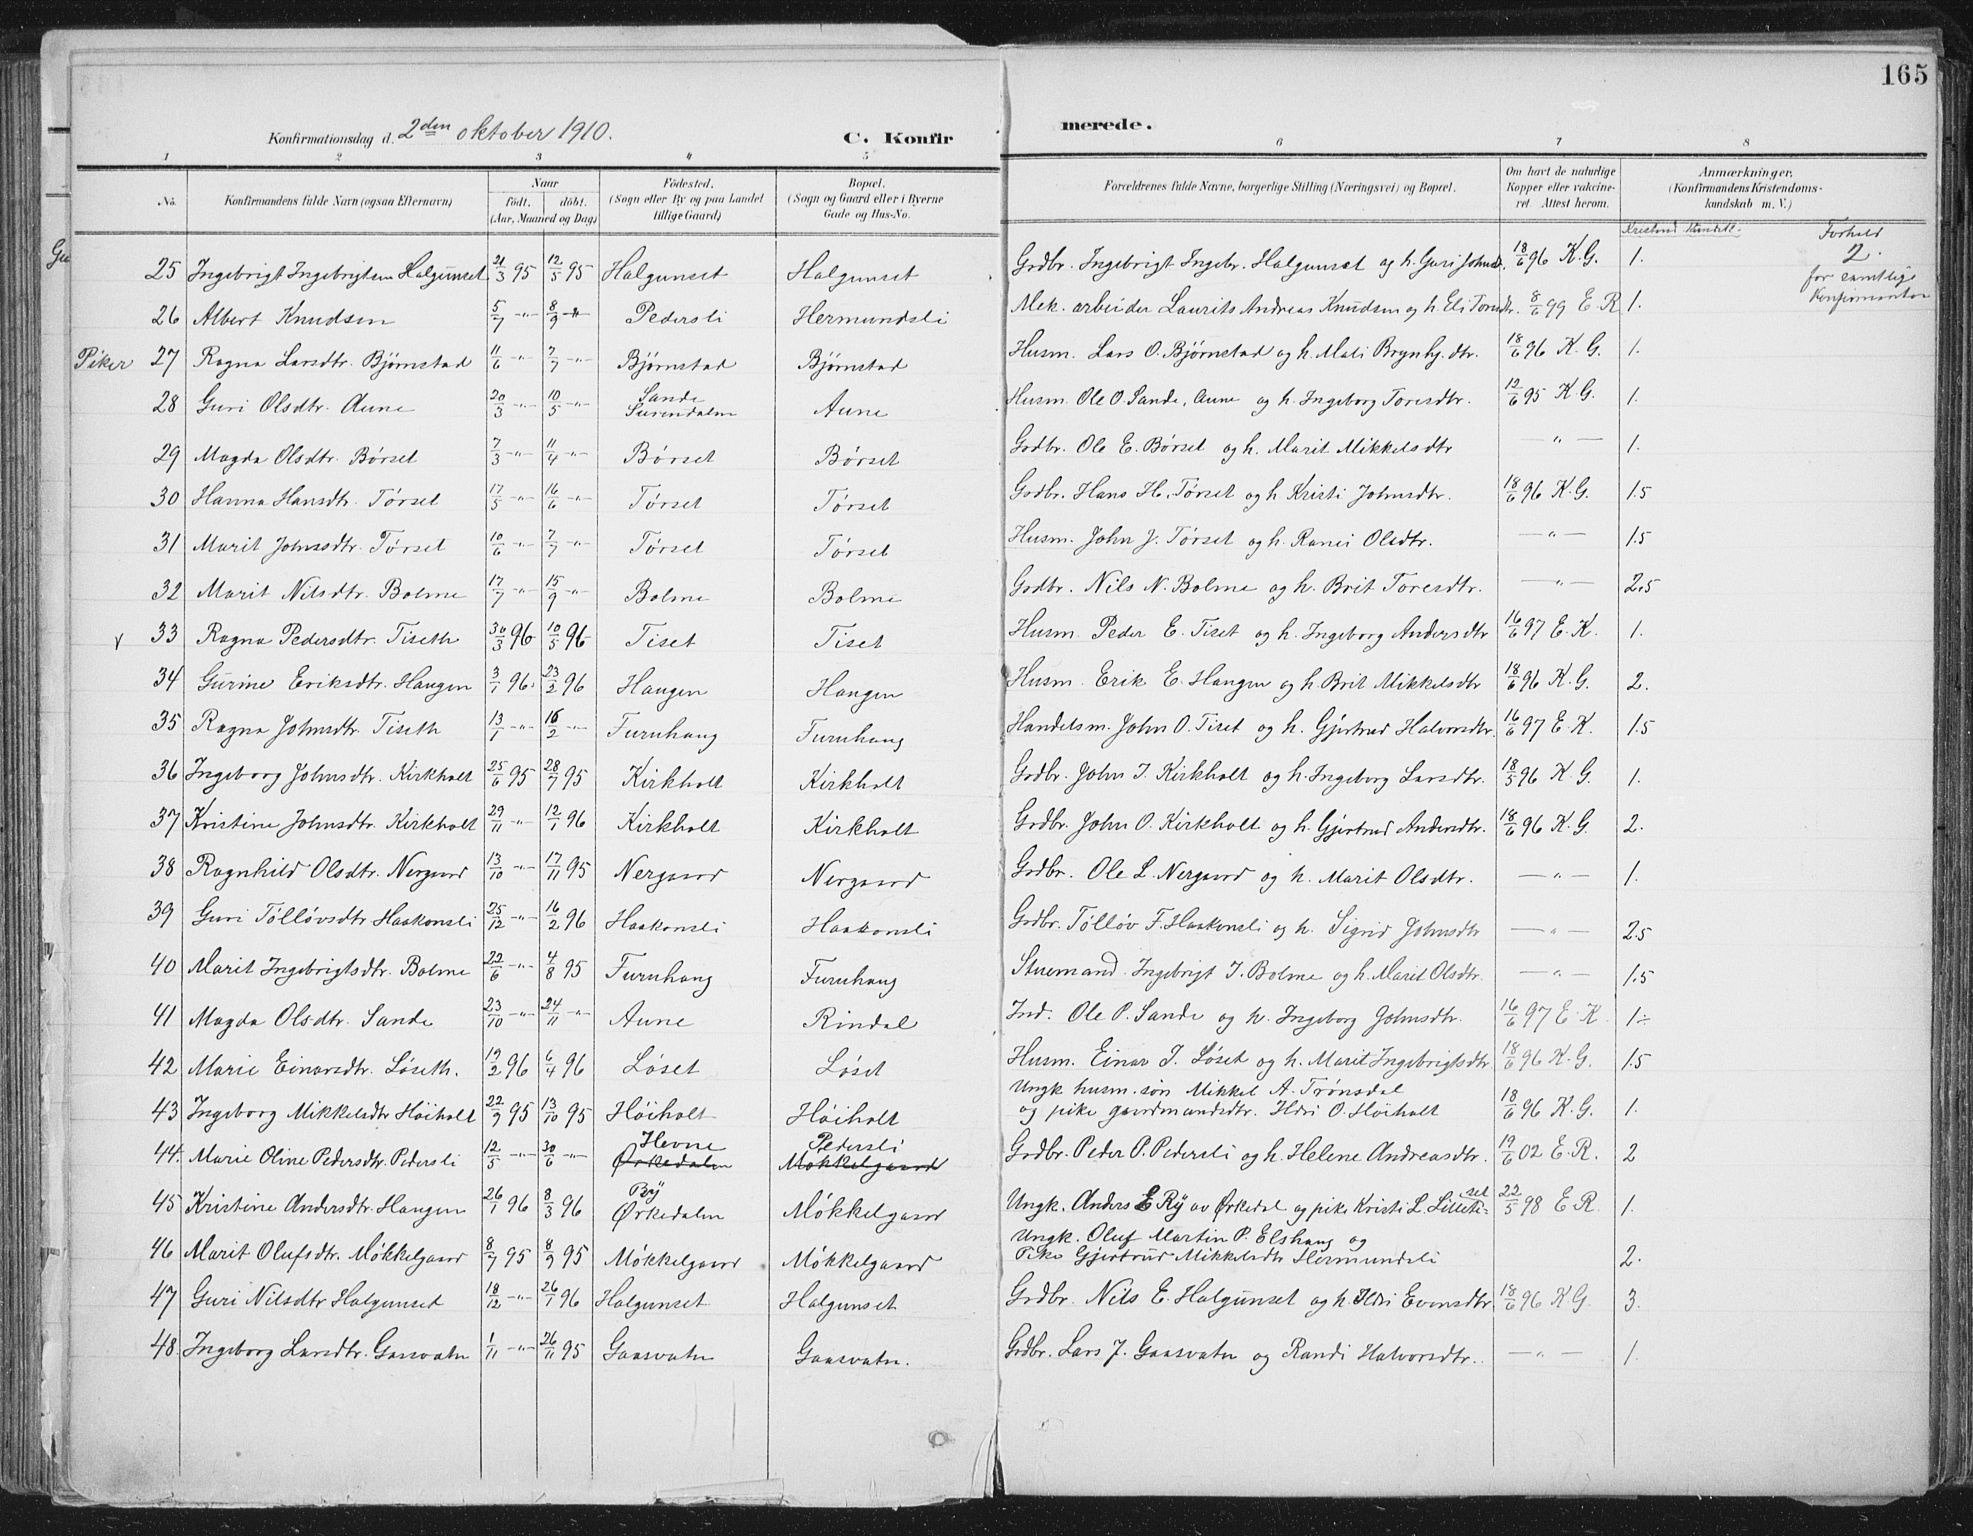 165
Konfirmationsdag d. 2den oktober 1910. C. Konfir merede.
1 2 3 4 5 6 7 8
No. Konfirmandens fulde Navn (ogsaa Efternavn) Naar født. døbt. (Aar, Maaned og Dag) Fødested. (Sogn eller By og paa Landet tillige Gaard) Bopæl. (Sogn og Gaard eller i Byerne Gade og Hus-No. Forældrenes fulde Navne, borgerlige Stilling (Næringsvei) og Bopæl. Om havt de naturlige Kopper eller vaccineret. Attest herom. Anmærkninger. (Konfirmandens Kristendomskundskab m. V.)
Forhold 2. for samtlige Konfirmanter
25 Ingebrigt Ingebrigtsen Halgunset 21/3 95 12/5 95 Halgunset Halgunset Grdbr. Ingebrigt Ingebr. Halgunset og h. Guri Johnsd. 18/6 96 K.G. 1.
26 Albert Knudsen 5/7 -"- 8/9 -"- Pedersli Hermundsli Mek. arbeider Laurits Andreas Knudsen og h. Eli Toresdtr. 8/6 99 E R 1.
Piker 27 Ragna Larsdtr. Bjørnstad 11/6 -"- 7/7 -"- Bjørnstad Bjørnstad Husm. Lars O. Bjørnstad og h. Mali Brynhj.dtr. 18/6 96 K.G. 1.
28 Guri Olsdtr. Aune 20/3 -"- 10/5 -"- Sande Surendalen Aune Husm. Ole O. Sande, Aune og h. Ingeborg Toresdtr. 12/6 95 K.G. 1.
29 Magda Olsdtr. Børset 7/3 -"- 11/4 -"- Børset Børset Grdbr. Ole E. Børset og h. Marit Mikkelsdtr -"- 1.
30 Hanna Hansdtr. Tørset 17/5 -"- 16/6 -"- Tørset Tørset Grdbr. Hans H. Tørset og h. Kristi Johnsdtr. 18/6 96 K.G. 1.5
31 Marit Johnsdtr. Tørset 10/6 -"- 7/7 -"- Tørset Tørset Husm. John J. Tørset og h. Ranei Olsdtr. -"- 1.5
32 Marit Nilsdtr. Bolme 17/7 -"- 15/9 -"- Bolme Bolme Grdbr. Nils N. Bolme og h. Brit Toresdtr. -"- 2.5
v 33 Ragna Pedersdtr. Tiseth 30/3 96 10/5 96 Tiset Tiset Husm. Peder E. Tiset og h. Ingeborg Andersdtr 16/6 97 E.K. 1.
34 Gurine Eriksdtr. Haugen 3/1 96. 23/2 96 Haugen Haugen Husm. Erik E. Haugen og h. Brit Mikkelsdtr 18/6 96 K.G. 2.
35 Ragna Johnsdtr. Tiseth 13/1 -"- 16/2 -"- Furuhaug Furuhaug Handelsm. John O. Tiset og h. Gjertrud Halvorsdtr. 16/6 97 E.K. 1.5
36 Ingeborg Johnsdtr. Kirkholt 25/6 95 28/7 95 Kirkholt Kirkholt Grdbr. John I. Kirkholt og h. Ingeborg Larsdtr. 18/5 96 K.G. 1.
37 Kristine Johnsdtr. Kirkholt 29/11 -"- 12/1 96 Kirkholt Kirkholt Grdbr. John O. Kirkholt og h. Gjertrud Andersdtr. 18/6 96 K.G. 2.
38 Ragnhild Olsdtr. Nergaard 13/10 -"- 17/11 95 Nergaard Nergaard Grdbr. Ole L. Nergaard og h. Marit Olsdtr. -"- 1.
39 Guri Tølløvsdtr Haakonsli 25/12 -"- 16/2 96 Haakonsli Haakonsli Grdbr. Tølløv F. Haakonsli og h. Sigrid Johnsdtr -"- 2.5
40 Marit Ingebrigtsdtr. Bolme 22/6 -"- 4/8 95 Furuhaug Furuhaug Stuemand. Ingebrigt I. Bolme og h. Marit Olsdtr. -"- 1.5
41 Magda Olsdtr. Sande 23/10 -"- 24/11 -"- Aune Rindal Ind. Ole P. Sande og h. Ingeborg Johnsdtr. 16/6 97 E.K. 1÷
42 Marie Einarsdtr. Løseth. 19/2 96 6/4 96 Løset Løset Husm. Einar I. Løset og h. Marit Ingebrigtsdtr 18/6 96 K.G. 1.5
43 Ingeborg Mikkelsdtr Høiholt 22/9 95 13/10 95 Høiholt Høiholt Ungk. husm. søn Mikkel A. Trønsdal og pike gaardmandsdtr. Ildri O. Høiholt 18/6 96 K.G. 1.
44. Marie Oline Pedersdtr. Pedersli 12/5 -"- 30/6 -"- Hevne Ørkedalen Pedersli Møkkelgaard Grdbr. Peder P. Pedersli og h. Helene Andreasdtr. 19/6 02 E.R. 2
45 Kristine Andersdtr. Haugen 26/1 96 8/3 96 Ry Ørkedalen Møkkelgaard Ungk. Anders E Ry av Ørkedal og pike Kristi L. Lilleteset 22/5 98 E R. 1.
46 Marit Olufsdtr. Møkkelgaard 8/7 95 8/9 95 Møkkelgaard Møkkelgaard Ungk. Oluf Martin P. Elshaug og Pike Gjertrud Mikkelsdtr Hermundsli 2.
47 Guri Nilsdtr Halgunset 18/12 -"- 26/1 96 Halgunset Halgunset Grdbr. Nils E. Halgunset og h. Ildri Evensdtr 18/6 96 K G. 3.
48. Ingeborg Larsdtr. Gaasvatn 1/11 -"- 26/11 95 Gaasvatn Gaasvatn. Grdbr. Lars J. Gaasvatn og Randi Halvorsdtr. -"- 1.